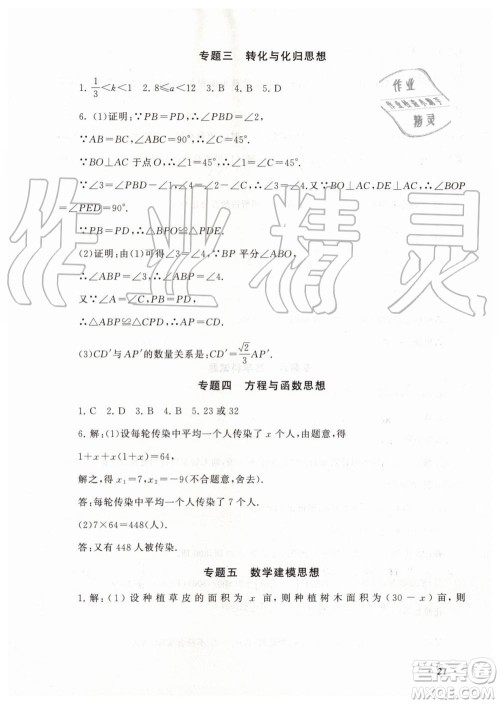 专题三 转化与化归思想
1. 1/3<k<1 2. 8≤a<12 3. B 4. D 5. B
6. (1)证明: ∵PB=PD, ∴∠2=∠PBD.
∵AB=BC, ∠ABC=90°, ∴∠C=45°.
∵BO⊥AC 于点O, ∴∠1=45°, ∴∠1=∠C=45°.
∵∠3=∠PBD-∠1, ∠4=∠2-∠C, ∴∠3=∠4.
又∵BO⊥AC, DE⊥AC, ∴∠BOP
=∠PED=90°.
∵BP=PD, ∴△BPO≌△PDE.
(2)证明:由(1)可得∠3=∠4. ∵BP 平分∠ABO,
∴∠ABP=∠3, ∴∠ABP=∠4.
又∵∠A=∠C, PB=PD,
∴△ABP≌△CPD, ∴AP=CD.
(3)CD′与AP′的数量关系是:CD′=√2/3 AP′.
专题四 方程与函数思想
1. C 2. D 3. B 4. B 5. 23或32
6. 解:(1)设每轮传染中平均一个人传染了 x 个人,由题意,得
1+x+x(1+x)=64,
解之,得 x₁=7, x₂=-9(不合题意,舍去).
答:每轮传染中平均一个人传染了7个人.
(2)7×64=448(人).
答:又有448人被传染.
专题五 数学建模思想
1. 解:(1)设种植草皮的面积为 x 亩,则种植树木面积为(30-x)亩,则
· 21 ·
作业精灵
作业
精灵
答案圈